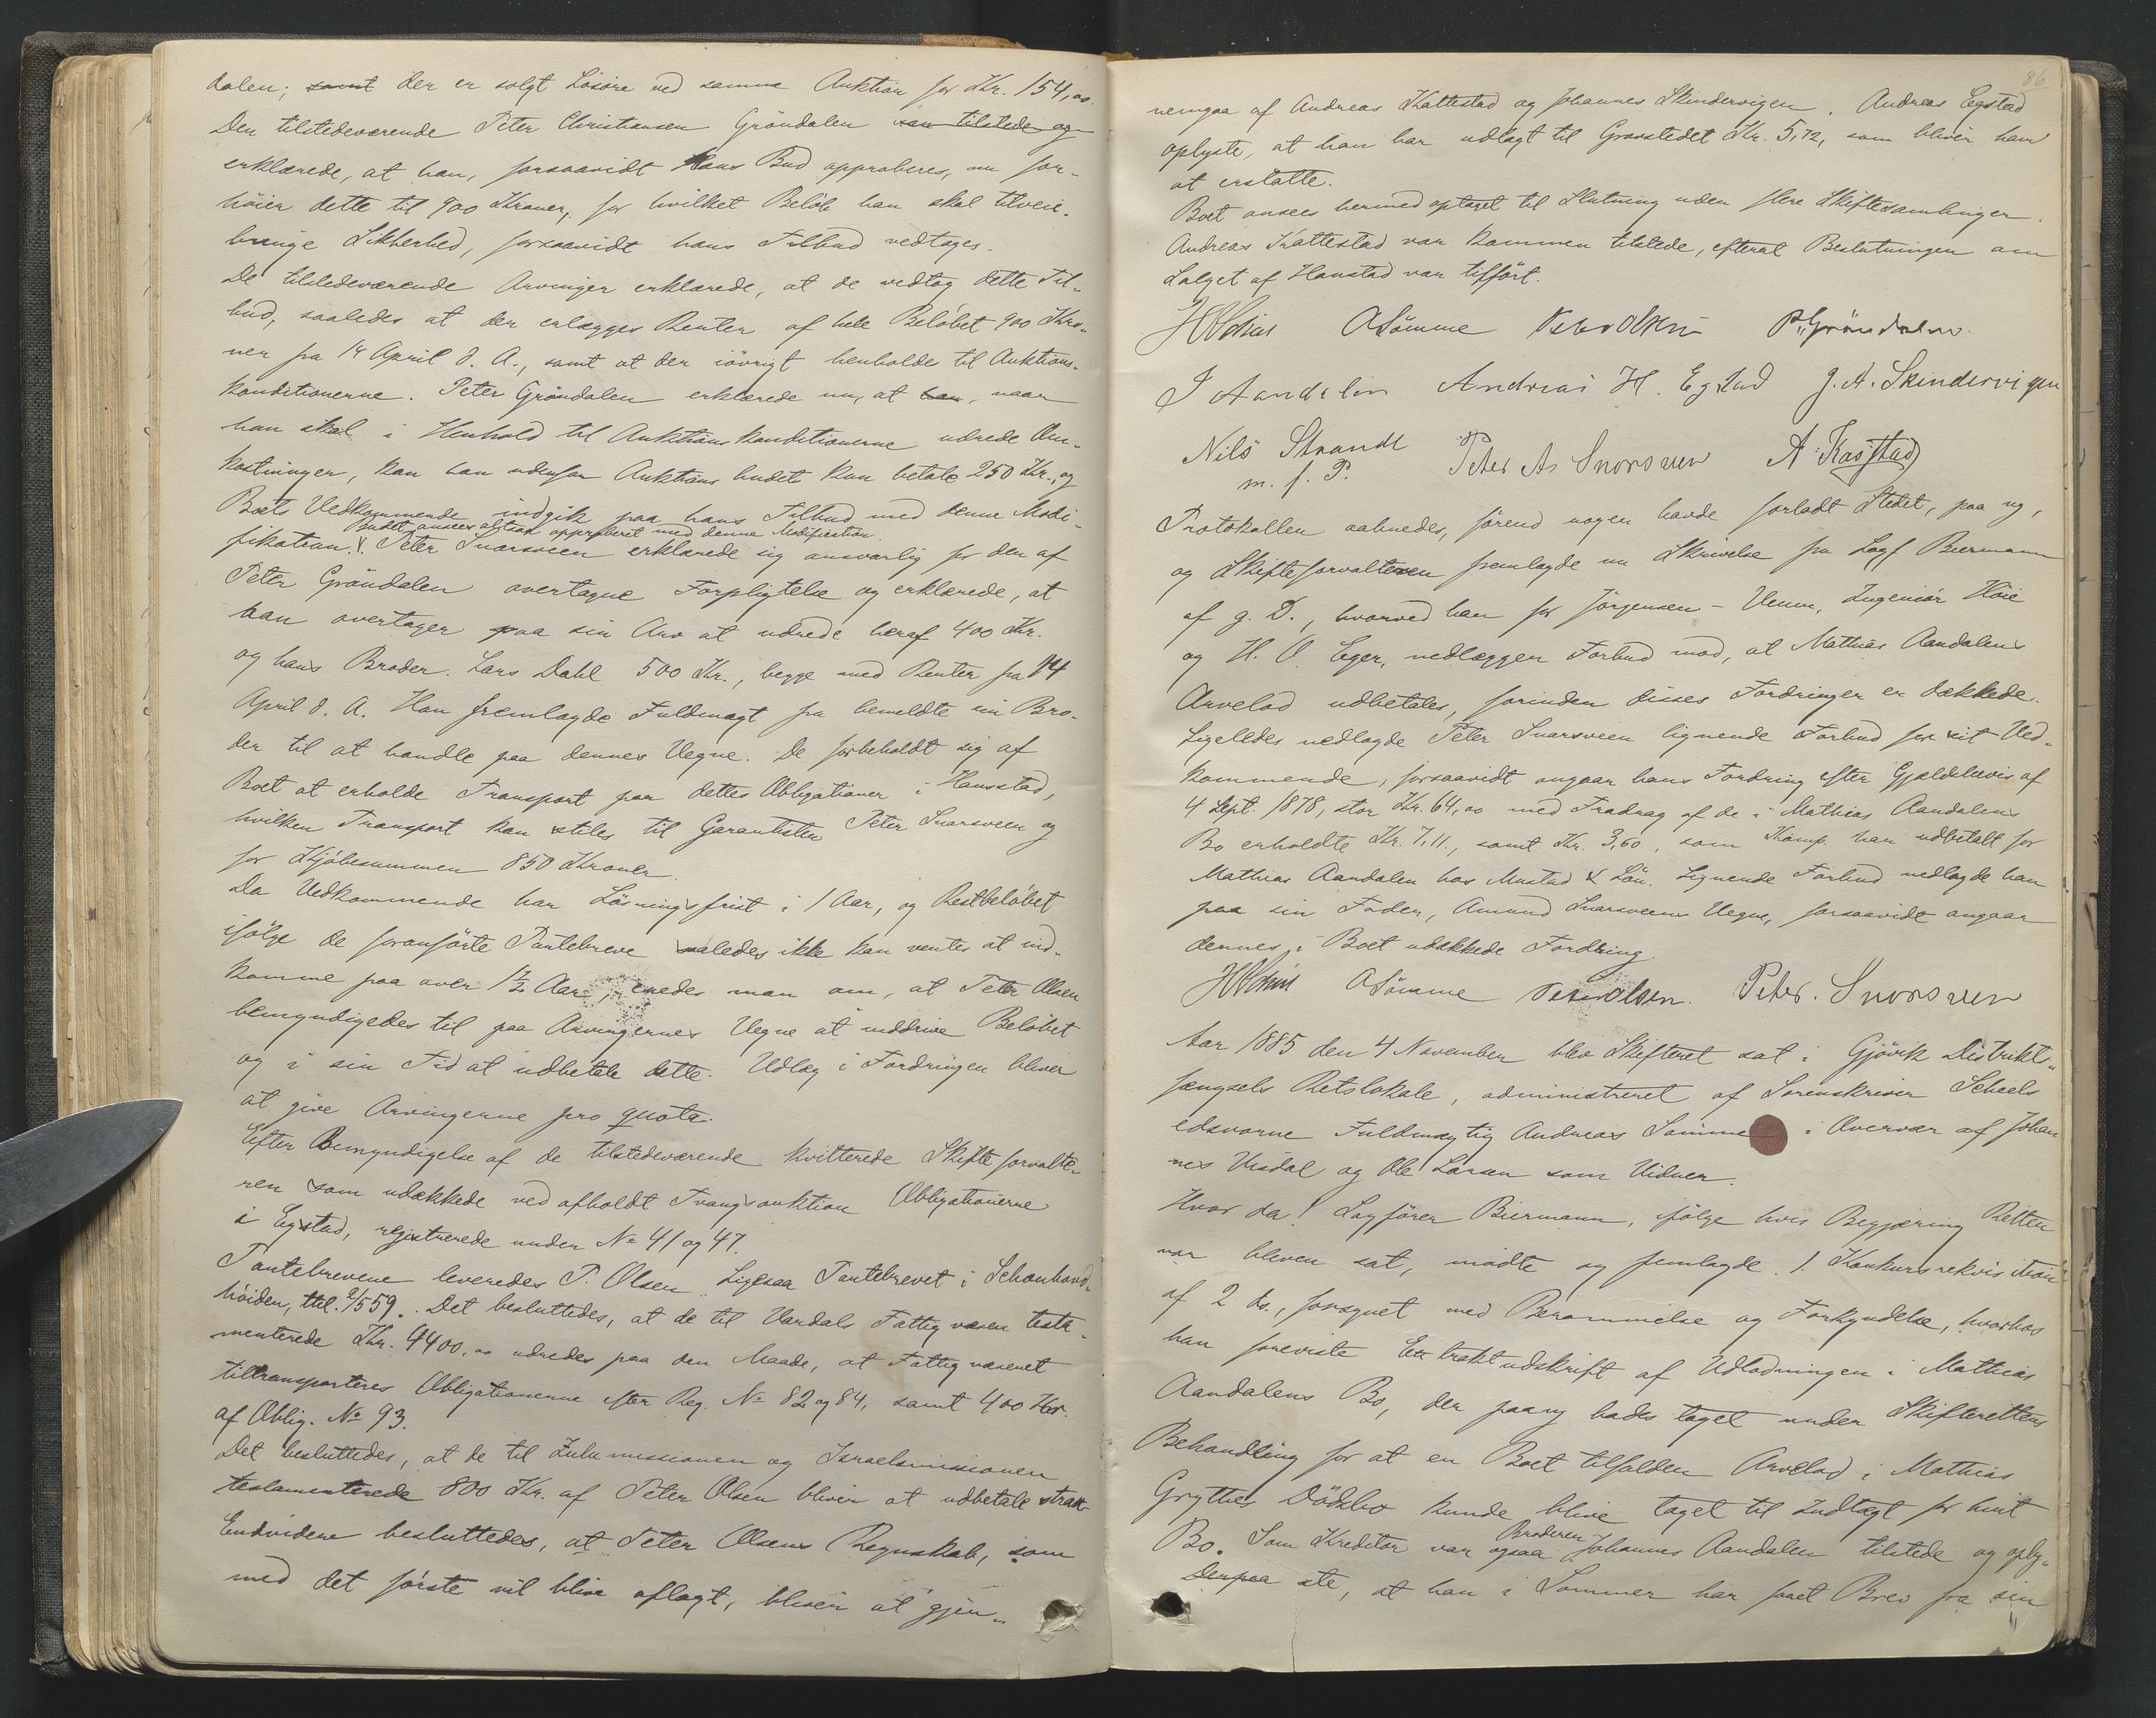 dalen; samt der er solgt Lösöre ved samme Auktion for Kr. 154,00.
Den tilstedeværende Peter Christiansen Gröndalen var tilstede og
erklærede, at han, forsaavidt hans Bud approberes, nu for-
höier dette til 900 Kroner, for hvilket Belöb han skal tilveie-
bringe Sikkerhed, forsaavidt hans Tilbud vedtages.
De tilstedeværende Arvinger erklærede, at de vedtog dette Til-
bud, saaledes at der erlægges Renter af hele Belöbet 900 Kro-
ner fra 14 April d. A., samt at der iövrigt henholdes til Auktions-
konditionerne. Peter Gröndalen erklærede nu, at han, naar
han skal i Henhold til Auktionskonditionerne udrede Om-
kostninger, kan han udenfor Auktionsbudet kun betale 250 Kr., og
Boets Vedkommende indgik paa hans Tilbud med denne Modi-
Budet ansees altsaa approberet med denne Modifikation.
fikation. Peter Snarsveen erklærede sig ansvarlig for den af
Peter Gröndalen overtagne Forpligtelse og erklærede, at
han overtager paa sin Arv at udrede heraf 400 Kr.
og hans Broder Lars Dahl 500 Kr., begge med Renter fra 14
April d. A. Han fremlagde Fuldmagt fra bemeldte sin Bro-
der til at handle paa dennes Vegne. De forbeholdt sig af
Boet at erholde Transport paa dettes Obligationer i Hanstad,
hvilken Transport kan stiles til Garantisten Peter Snarsveen og
for Kjöbesummen 850 Kroner.
Da Vedkommende har Lösningsfrist i 1 Aar, og Restbelöbet
ifölge de foranförte Pantebreve saaledes ikke kan ventes at ind-
komme paa over 1½ Aar, enedes man om, at Peter Olsen
bemyndigedes til paa Arvingernes Vegne at inddrive Belöbet
og i sin Tid at udbetale dette. Udlæg i Fordringen bliver
at give Arvingerne pro quota.
Efter Bemyndigelse af de tilstedeværende kvitterede Skifteforvalte-
ren som udækkede ved afholdt Tvangsauktion Obligationerne
i Egstad, registrerede under No 41 og 47.
Pantebrevene leveredes P. Olsen. Ligesaa Pantebrevet i Schonhovd-
höiden, Det besluttedes, at de til Vardals Fattigvæsen testa-
menterede Kr. 4400,00 udredes paa den Maade, at Fattigvæsenet
tiltransporteres Obligationerne efter Reg. No 82 og 84, samt 400 Kr.
af Oblig. No 93.
Det besluttedes, at de til Zulumissionen og Israelsmissionen
testamenterede 800 Kr. af Peter Olsen bliver at udbetale strax.
Endvidere besluttedes, at Peter Olsens Regnskab, som
med det förste vil blive aflagt, bliver at gjen-
86
nemgaa af Andreas Kattestad og Johannes Skindervigen. Andreas Egstad
oplyste, at han har udlagt til Gravstedet Kr. 5,72, som bliver ham
at erstatte.
Boet ansees hermed optaget til Slutning uden flere Skiftesamlinger.
Andreas Kattestad var kommen tilstede, efterat Beslutningen om
Salget af Hanstad var tilfört.
ASömme Peter Olsen P. Gröndalen.
J Aandalen Andreas H. Egstad J. A. Skindervigen
Nils Strande Peter As Snorsven A. Kasstad
m. f. P.
Protokollen aabnedes, förend nogen havde forladt Stedet, paa ny,
og Skifteforvalteren fremlagde en Skrivelse fra Sagf. Biermann
af g. D., hvorved han for Jörgensen - Veum, Ingeniör Höie
og H. O. Eger, nedlægger Forbud mod, at Mathias Aandalens
Arvelod udbetales, forinden disses Fordringer er dækkede.
Ligeledes nedlagde Peter Snarsveen lignende Forbud for sit Ved-
kommende, forsaavidt angaar hans Fordring efter Gjældsbevis af
4 Sept. 1878, stor Kr. 64,00 med Fradrag af de i Mathias Aandalens
Bo erholdte Kr. 7,11., samt Kr. 3,60, som Komp. har udbetalt for
Mathias Aandalen hos Mustad & Sön. Lignende Forbud nedlagde han
paa sin Fader, Amund Snarsveens Vegne, forsaavidt angaar
dennes i Boet udækkede Fordring.
ASömme Peter Olsen. Peter. Snorsven
Aar 1885 den 4 November blev Skifteret sat i Gjövik Distrikts-
fængsels Retslokale, administreret af Sorenskriver Scheels
edsvorne Fuldmægtig Andreas Sömme i Overvær af Johan
nes Viisdal og Ole Larsen som Vidner.
Hvor da! Sagförer Biermann, ifölge hvis Begjæring Retten
var bleven sat, mödte og fremlagde 1 Konkursrekvisition
af 2 ds., forsynet med Berammelse og Forkyndelse, hvorhos
han foreviste Extraktudskrift af Udlodningen i Mathias
Aandalens Bo, der paany bedes taget under Skifterettens
Behandling for at en Boet tilfalden Arvelod i Mathias
Grythes Dödsbo kunde blive taget til Indtægt for hint
Broderen
Bo. Som Kreditor var ogsaa Johannes Aandalen tilstede og oply-
Derpaa ste, at han i Sommer har faaet Brev fra sin